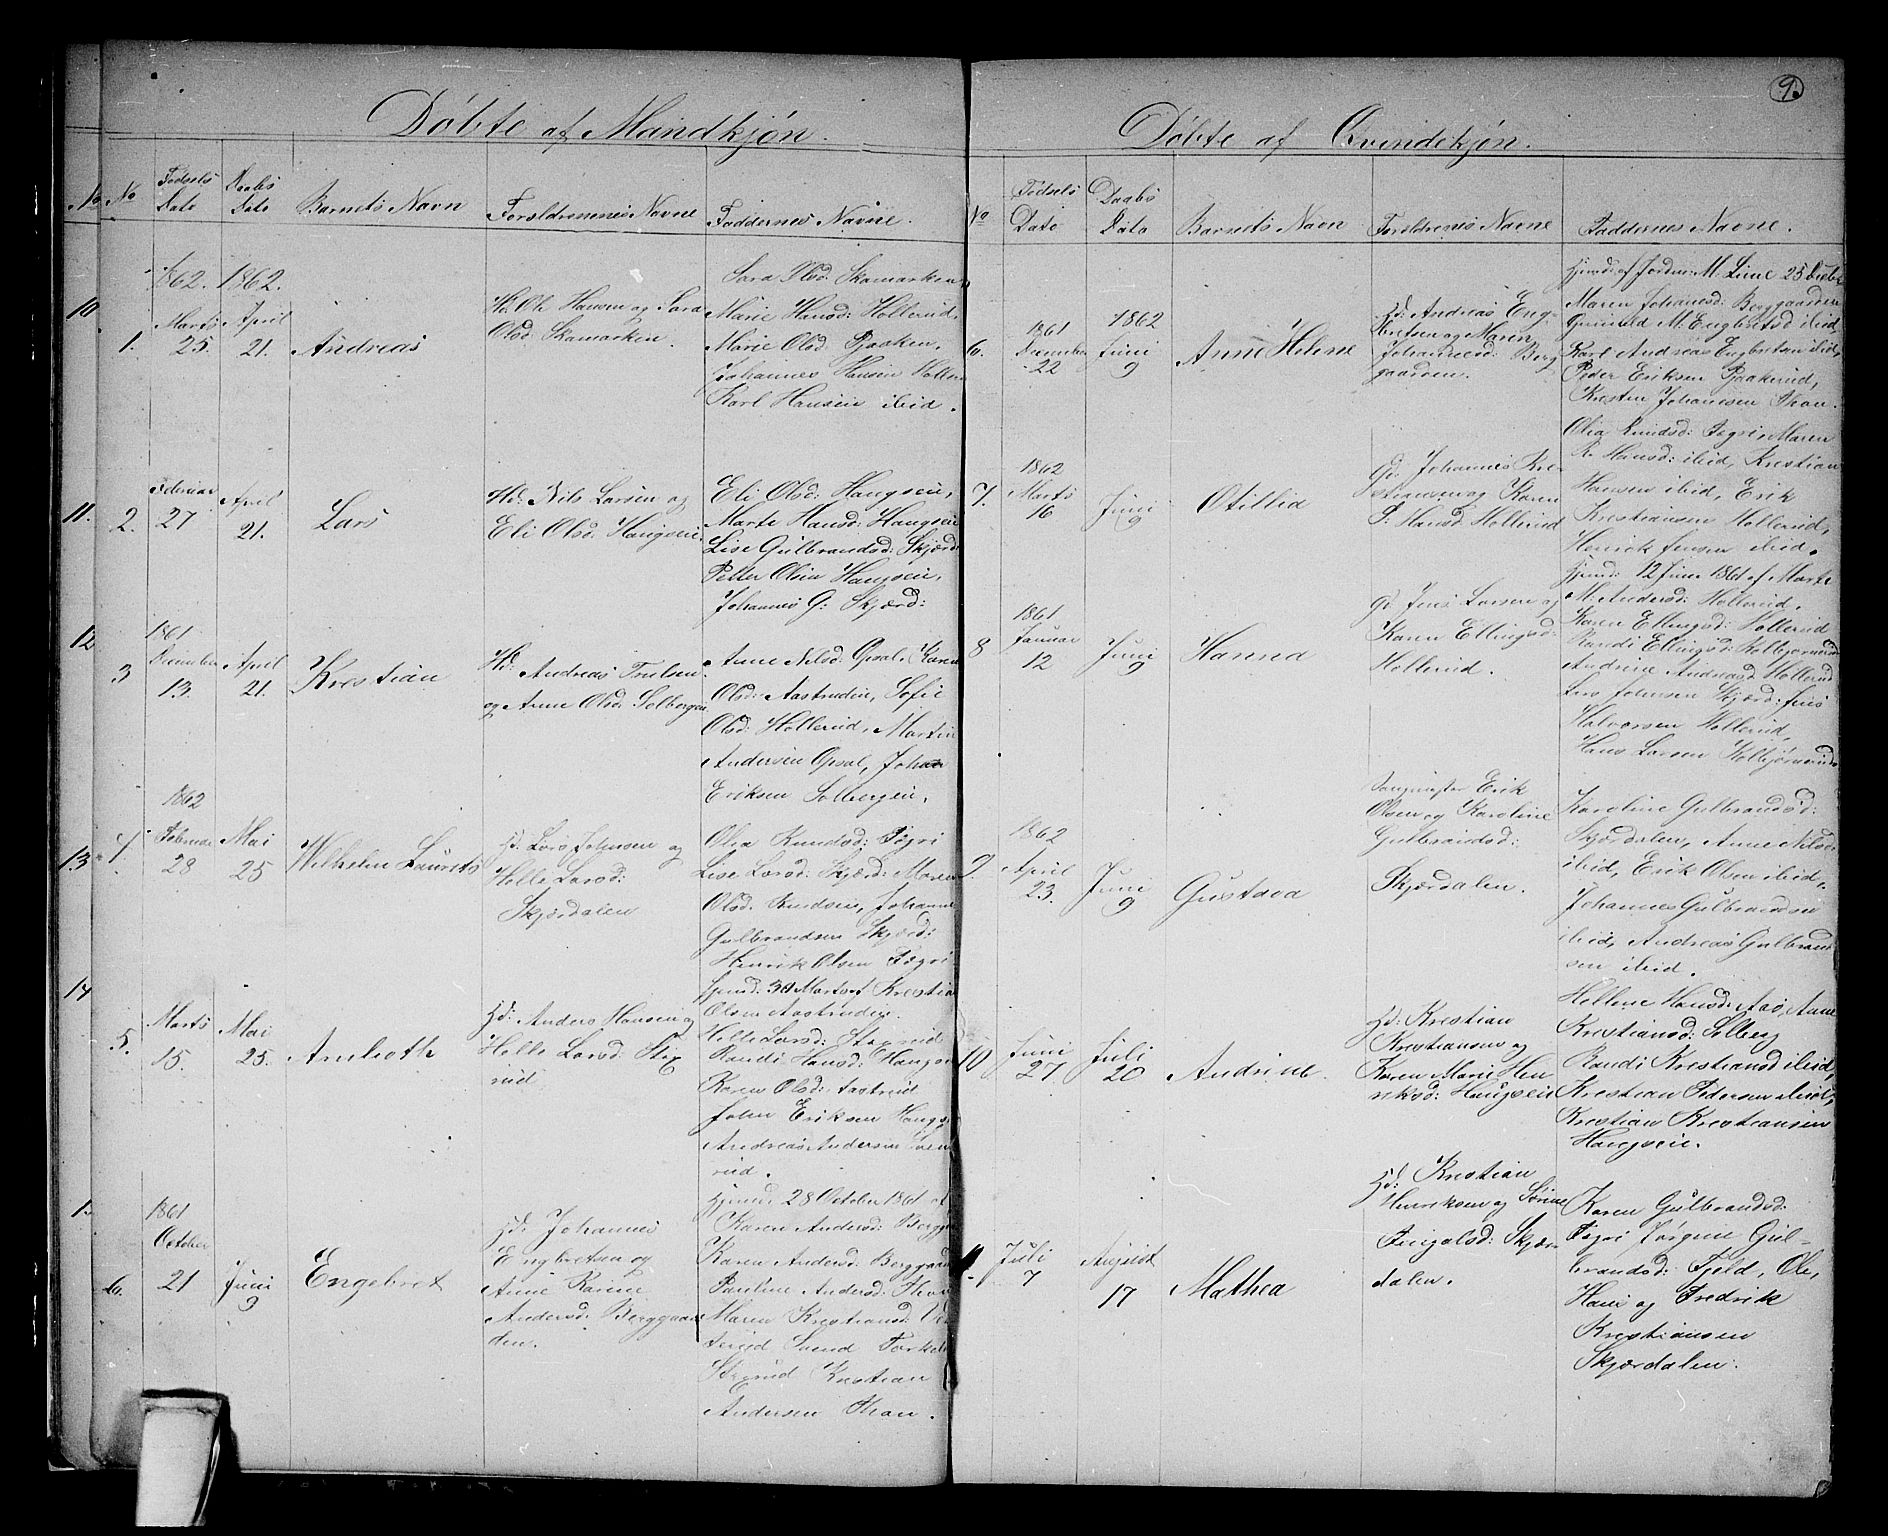 9.
Døbte af Mandkjøn.
No No Fødsels Date Daabs Date Barnets Navn Forældrenes Navne Faddernes Navne.
10
1.
1862. Marts 25.
1862. April 21.
Andreas
Hd: Ole Hansen og Sara
Olsd: Skamarken.
Sara Olsd: Skamarken
Marie Hansd: Hollerud,
Marie Olsd
Johannes Hansen
Karl Hansen ibid.
11.
2.
Februar 27
April 21.
Lars
Hd: Nils Larsen og
Eli Olsd: Haugseie,
Eli Olsd: Haugseie,
Marte Hansd: Haugseie
Lise Gulbrandsd: Skjærd:
Petter Olsen Haugseie,
Johannes G: Skjærd:
12
3
1861 December 13.
April 21.
Krestian
Hd: Andreas Trulsen
og Anne Olsd: Solbergeie
Anne Nilsd: Opsal, Karen
Olsd: Aastrudeie, Sofie
Olsd: Hollerud, Martin
Andersen Opsal, Johan
Eriksen Solbergeie.
13
4.
1862 Februar 28
Mai 25
Wilhelm Laurits
Hd: Lars Johnsen og
Helle Larsd:
Skjærdalen
Olia Knudsd: Fægri
Lise Larsd: Skjærd: Maren
Olsd: Knudseie, Johannes
Gulbrandsen Skjærd:
Henrik Olsen Fægri
14
5.
Marts 15.
Mai 25.
Amboth
Hd: Anders Hansen og
Helle Larsd: Stax
rud
Hjemd: 30 Marts af Krestian
Olsen Aastrudeie.
Helle Larsd: Staxrud
Randi Hansd: Haugseie
Karen Olsd: Aastrud
John Eriksen Haugs
Andreas Andersen
rud.
1.
6.
1861 October 21
Juni 9
Engebret
Hd: Johannes
Engbretsen og
Anne Karine
Andersd: Berggaar
den.
Hjemd. 28 October 1861 af
Karen Andersd: Berggaa
Karen Andersd: Berggaard
Pauline Andersd: Thon
Maren Krestiansd:
Svend Torkels
Krestian
Andersen Thon.
Døbte af Qvindekjøn.
No Fødsels Date Daabs Date Barnets Navn Forældrenes Navne Faddernes Navne.
6.
1861 December 22
1862 Juni 9
Anne Helene
Hd: Andreas Eng-
bretsen og Maren
Johannesd: Berg
gaarden.
Hjemd: af Jordm: M. Lime 25 Decbr
Maren Johansd: Berggaarden
Gunild M. Engbretsd ibid,
Karl Andreas Engbretsen ibid,
Peder Eriksen
Kresten Johanesen Thon.
7.
1862 Marts 16
Juni 9
Otillia
Gd: Johannes Kre-
stiansen og Karen
P: Hansd: Hollerud
Olia Knudsd: Fægri, Maren
R. Hansd: ibid, Krestian
Hansen ibid, Erik
Krestiansen Hollerud,
Henrik Jensen ibid.
8
1861 Januar 12
Juni 9
Hanna
Gd: Jens Larsen og
Karen Ellingsd:
Hollerud.
Hjemd: 12 Juni 1861 af Marte
M: Andersd: Hollerud.
Karen Ellingsd: Hollerud
Randi Ellingsd: Kolbjørnsrud
Andrine Andreasd Hollerud
Lars Johnsen Skjærd: Jens
Halvorsen Hollerud,
Hans Larsen Kolbjørnsrud
9.
1862 April 23.
Juni 9
Gustava
Sangmester Erik
Olsen og Karoline
Gulbrandsd:
Skjærdalen.
Karoline Gulbrandsd:
Skjærdalen, Anne Nilsd:
ibid, Erik Olsen ibid,
Johannes Gulbrandsen
ibid, Andreas Gulbrand-
sen ibid.
10
Juni 27
Juli 20
Andrine.
Hd: Krestian
Krestiansen og
Karen Marie Hen
riksd: Haugseie
Hellene Hansd: Aasø, Anne
Krestiansd: Solberg
Randi Krestiansd ibid,
Krestian Pedersen ibid,
Krestian Krestiansen
Haugseie.
11.
Juli 7
August 17
Mathea
Hd: Krestian
Henriksen og Sørine
Fingalsd: Skjær
dalen.
Karen Gulbrandsd:
Fægri Jørgine Gul-
brandsd: Fjeld, Ole,
Hans og Fredrik
Krestiansen
Skjærdalen.